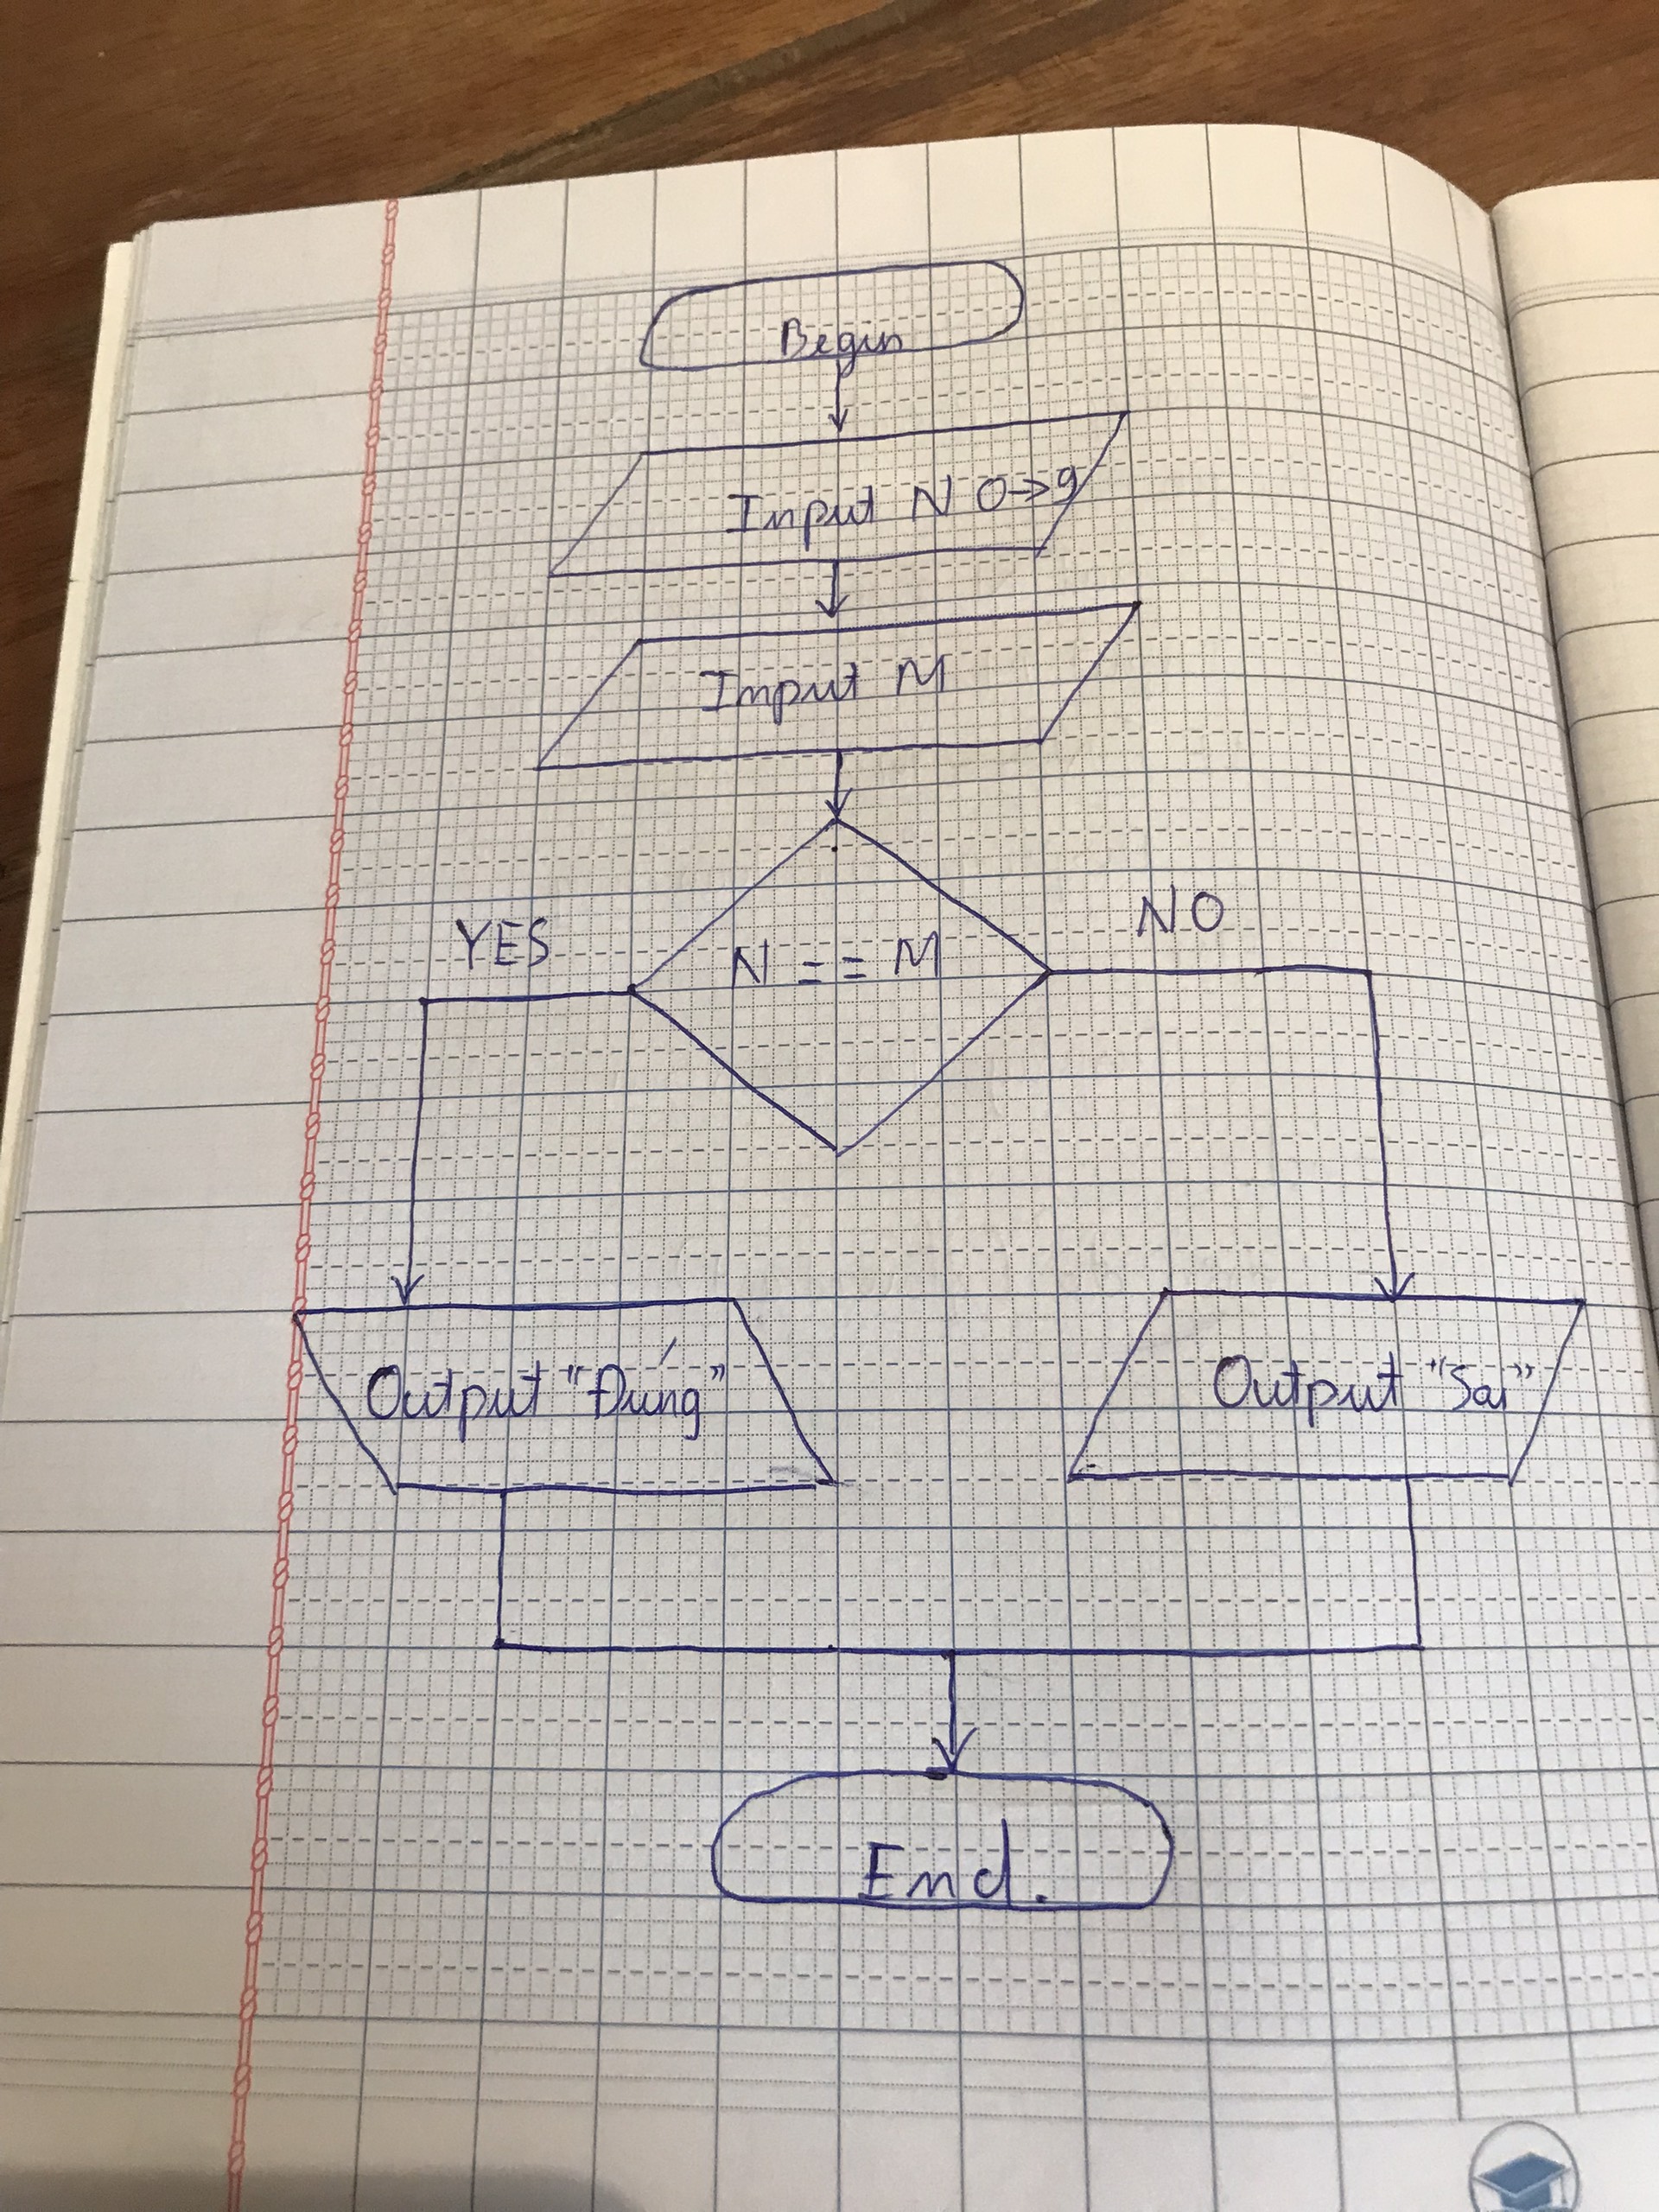 Begin
Input N 0→9
Input M
YES
N == M
NO
Output "Đúng"
Output "Sai"
End.